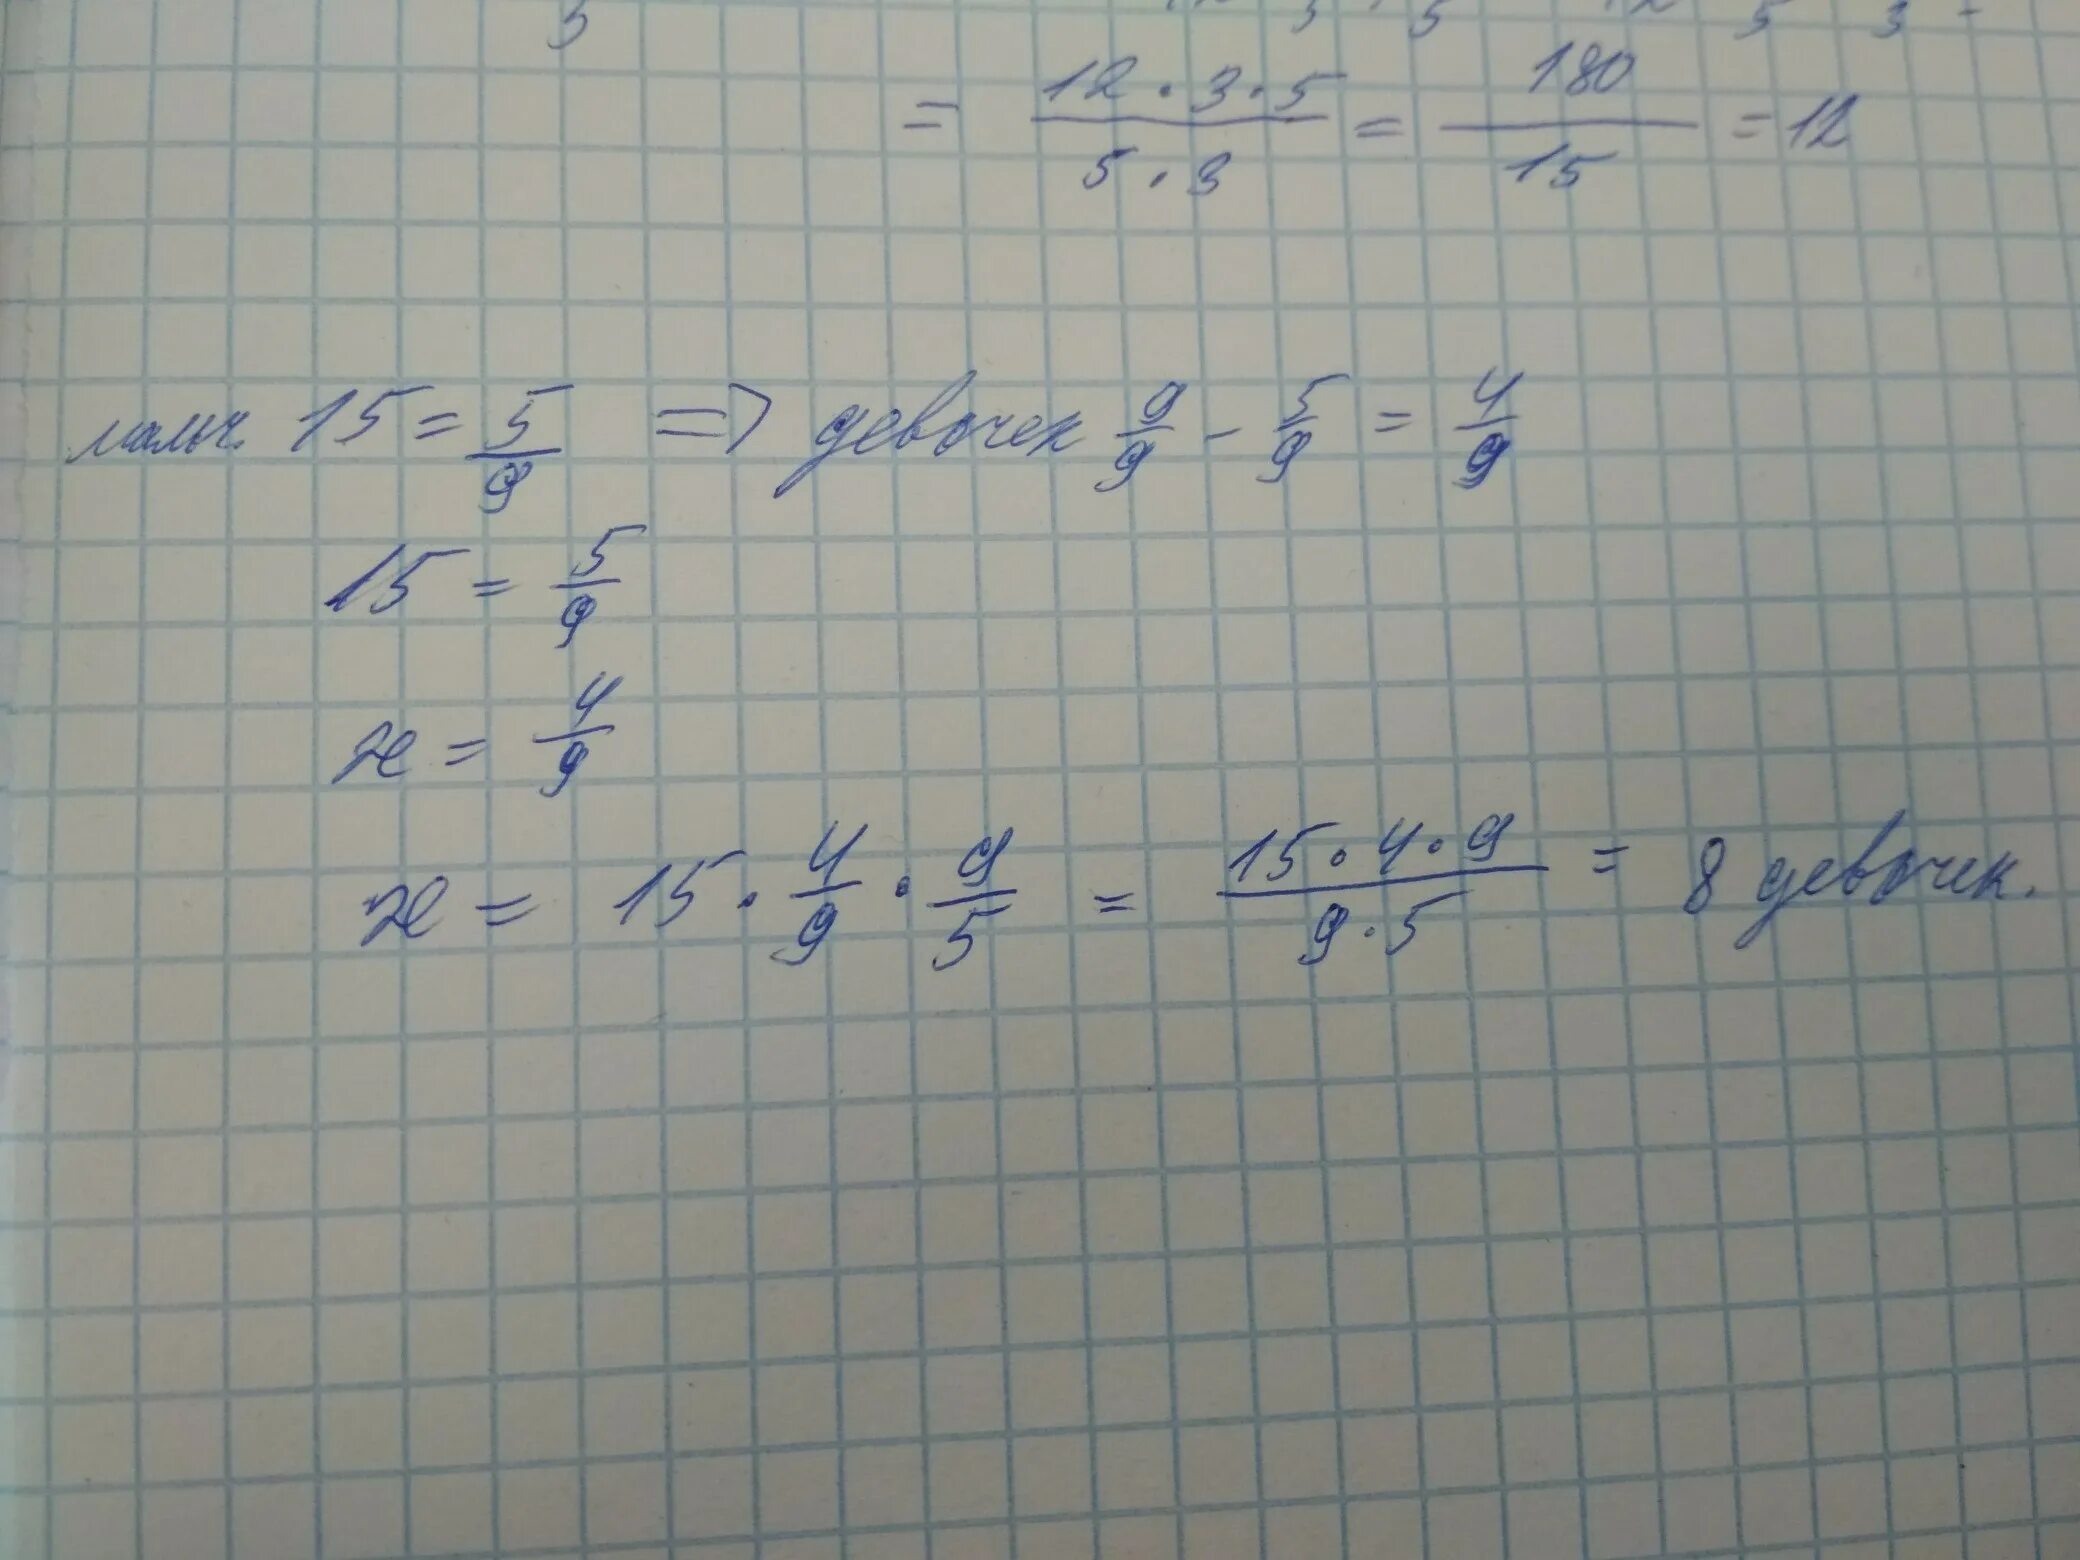 = 12 · 3 · 5 / 5 · 3 = 180 / 15 = 12
мальч. 15 = 5/9 => девочек 9/9 - 5/9 = 4/9
15 = 5/9
x = 4/9
x = 15 · 4/9 · 9/5 = 15 · 4 · 9 / 9 · 5 = 8 девочек.